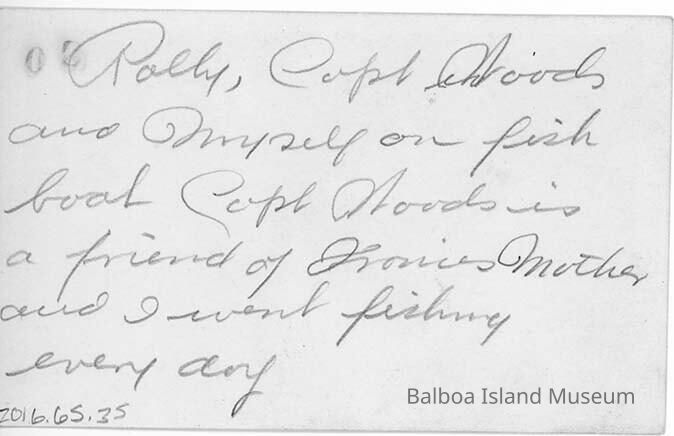 Rolly, Capt Woods
and Myself on fish
boat Capt Woods is
a friend of Mother
and I went fishing
every day
Balboa Island Museum
2016.65.35